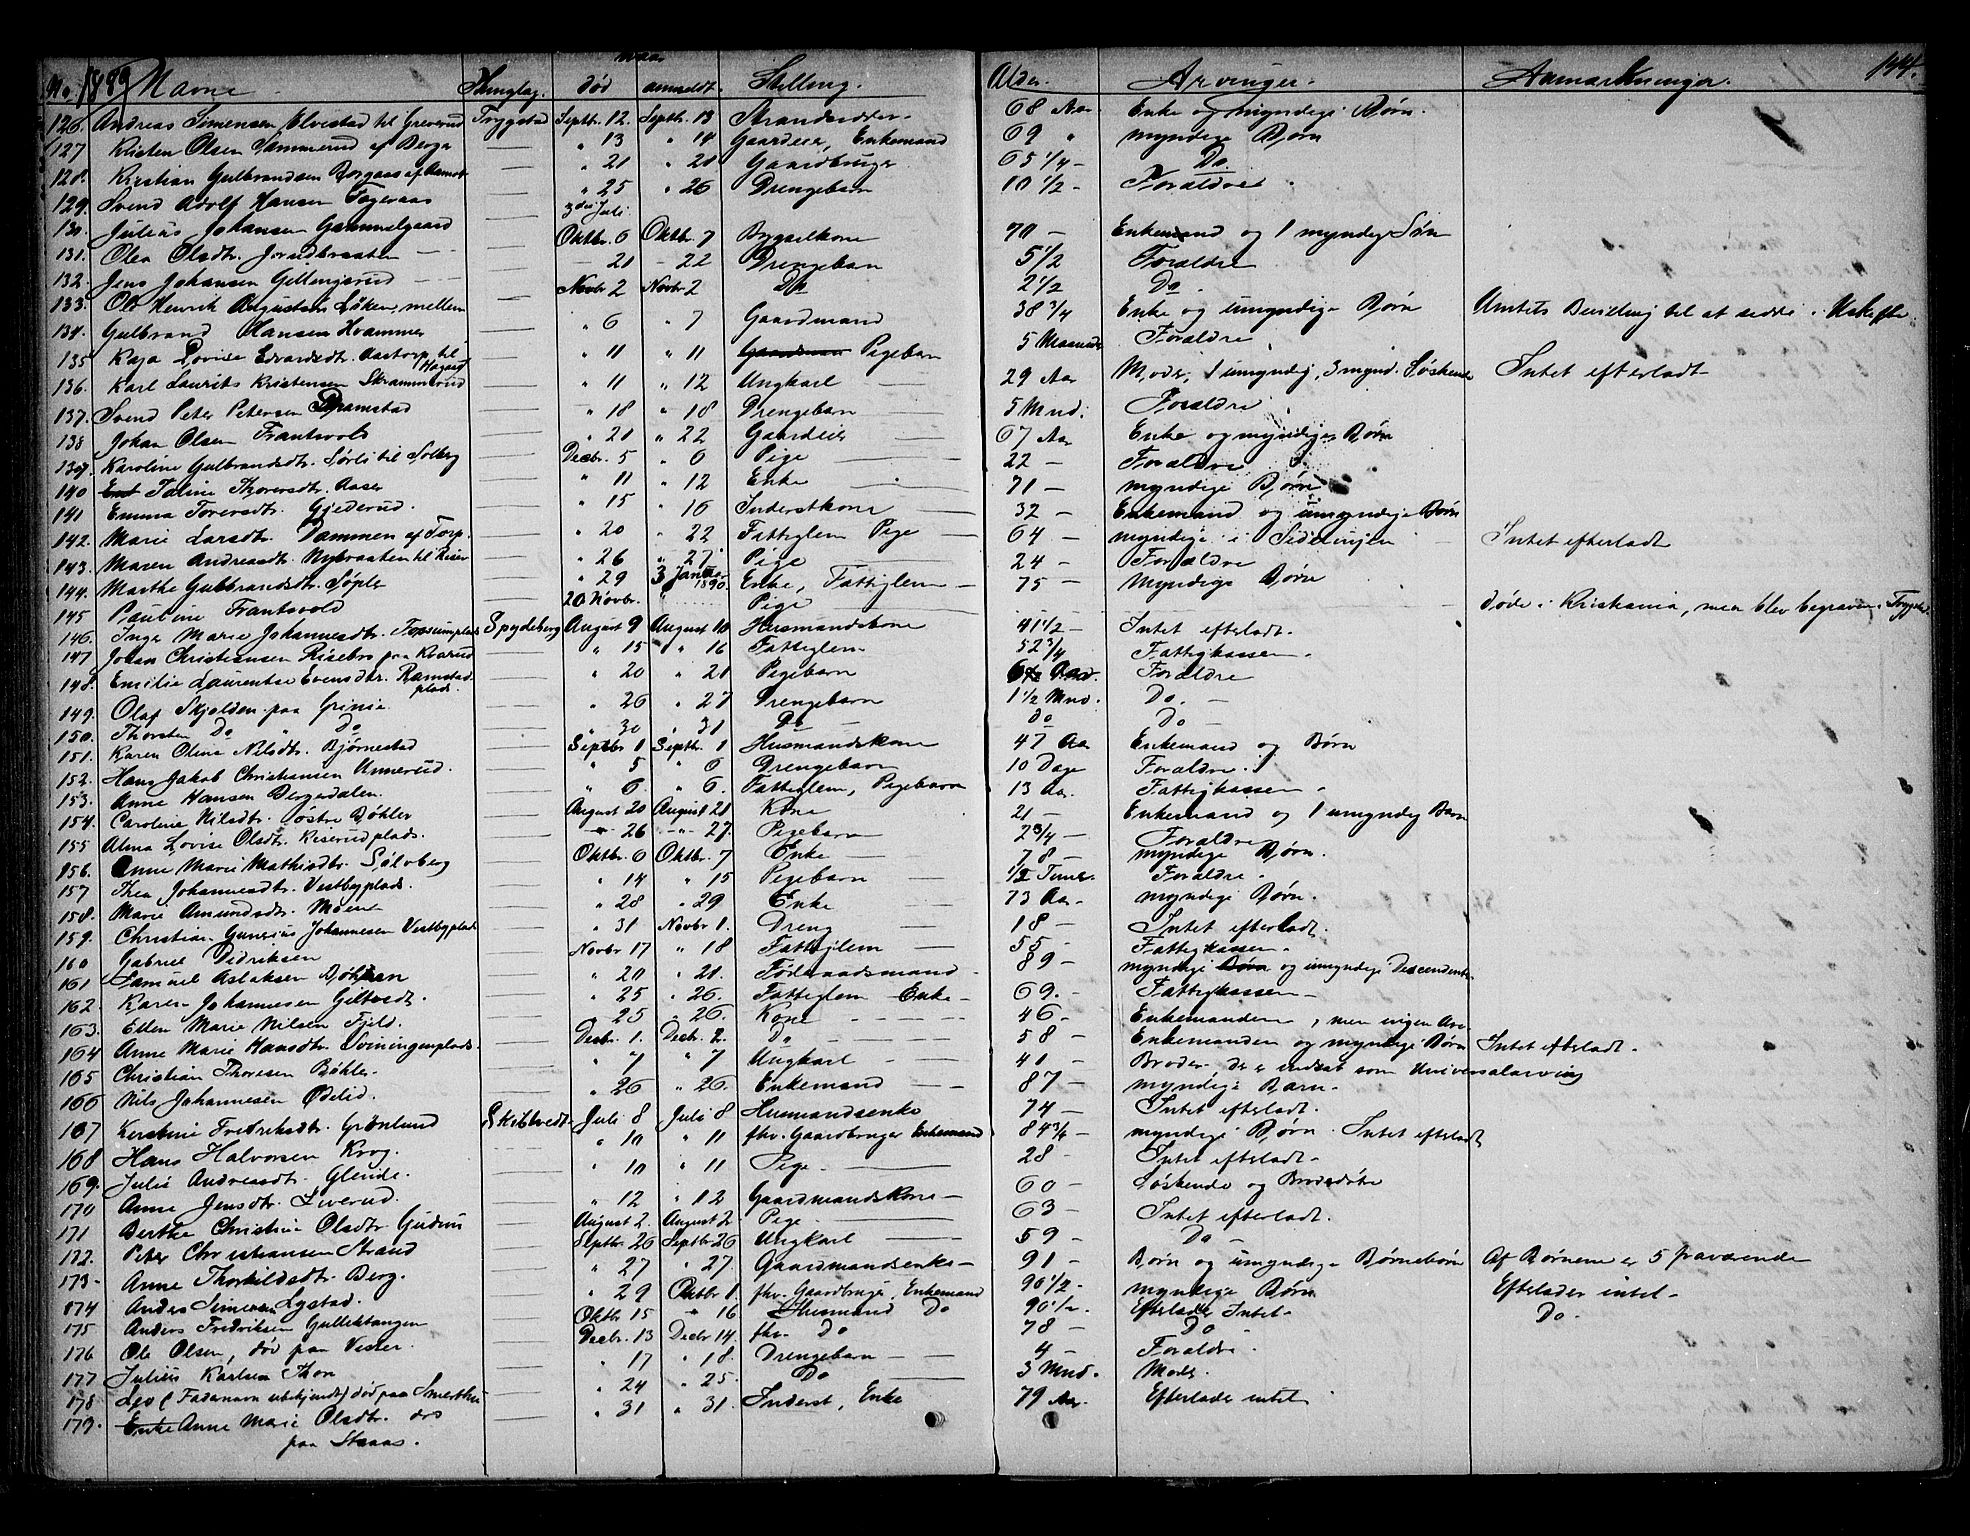 No. 1889 Navne Thinglag. død anmeldt. Stilling. Alder. Arvinger. Anmærkninger. 144.
126. Andreas Simensen Elvestad til Greverud Trygstad Septbr. 12. Septbr. 13 Strandsidder 68 Aar Enke og myndige Børn.
127 Kristen Olsen Sammerud af Berger " 13 " 14 Gaardeier, Enkemand 69 " myndige Børn
128. Kristian Gulbrandsen " 21 " 21 Gaardbruger 65 1/4 - Do.
129. Svend Adolf Hansen Fageraas " 25 " 26 Drengebarn 10 1/2 - Forældre
130. Julius Johansen Gammelgaard 3die Juli
131. Olea Olsdtr. Oktbr. 6 Oktbr. 7 Bygselkone 70 - Enkemand og 1 myndig Søn
132. Jens Johansen Gillingsrud - 21 - 22 Drengebarn 5 1/2 Forældre
133. Ole Henrik Augustsen Løken, mellem Novbr 2 Novbr 2 Do 2 1/2 Do.
134. Gulbrand Hansen Kvammer " 6 " 7 Gaardmand 38 3/4 Enke og umyndige Børn Amtets Bevilling til at sidde i Uskifte.
135 Kaja Lovise Edvardsdtr. Aastorp til " 11 " 11 Gaardman Pigebarn 5 Maaneder Forældre
136. Karl Laurits Kristensen Skrammerud " 11 " 12 Ungkarl 29 Aar Moder, 1 umyndig, 3 mynd. Søskende Intet efterladt
137. Svend Peter Petersen Ramstad " 18 " 18 Drengebarn 5 Mnd. Forældre
138 Johan Olsen Frantsvold " 21 " 22 Gaardeier 67 Aar Enke og myndige Børn
139. Karoline Gulbrandsdtr. Sørli til Solberg Decbr. 5 " 6 Pige 22 - Forældre
140 Taline Thoresdtr. Aaser " 11 " 12 Enke 71 - myndige Børn
141 Emma Toresdtr. Gjederud. " 15 " 16 Inderstkone 32 - Enkemand og umyndige Børn
142. Marie Larsdtr. Dammen af Torp. " 20 " 22 Fattiglem Pige 64 - myndige i Sidelinjen Intet efterladt
143. Maren Andreasdtr. Nybraaten til " 26 " 27 Pige 24 - Forældre
144. Marthe Gulbrandsdtr. Søpler " 29 3 Januar 1890. Enke, Fattiglem 75 - Myndige Børn
145 Pauline Frantsvold 20 Novbr. Pige Døde i Kristiania, men blev begraven i
146. Inga Marie Johannesdtr. Fossumplads Spydeberg August 9 August 10 Husmandskone 41 1/2 - Intet efterladt.
147 Johan Christiansen Risebro paa " 15 " 16 Fattiglem 52 3/4 Fattigkassen.
148. Emilie Laurentse Evensdtr. Ramstad plads. " 20 " 21 Pigebarn Forældre
149. Olaf Skjolden paa Grinie " 26 " 27 Drengebarn 1 1/2 Mnd. Do.
150. Thorsten Do " Do " 30 " 31 Do do Do
151. Karen Olina Nilsdtr. Bjørnestad Septbr 1 Septbr. 1 Husmandskone 47 Aa Enkemand og Børn
152. Hans Jakob Christiansen Unnerud. " 5 " 6 Drengebarn 10 Dage Forældre.
153. Anne Hansen Bergerdalen. " 6 " 6. Fattiglem, Pigebarn 13 Aa. Fattigkassen
154. Caroline Nilsdtr. østre Bøhler August 20 August 21 Kone 21 - Enkemand og 1 umyndig Barn
155 Alma Lovise Olsdtr. Riserudplads. " 26 " 27. Pigebarn 2 3/4 - Forældre
156. Anne Marie Mathisdtr. Sølvberg Oktbr. 6 Oktbr. 7 Enke 78 - myndige Børn.
157 Thea Johannesdtr. Vestbyplads. " 14 " 15 Pigebarn 1/2 Time. Forældre.
158. Marie Amundsdtr. Moene " 28 " 29 Enke 73 Aa. myndige Børn.
159. Christian Gunerius Johannesen Vestbyplads " 31 Novbr 1. Dreng 18 - Intet efterladt.
160 Gabriel Didriksen Novbr 17 " 18 Fattiglem 55 - Fattigkassen.
161 Samuel Aslaksen " 20 " 21. Føderaadsmand 89 - myndige Børn og umyndige Descendenter
162. Karen Johannesen " 25 " 26. Fattiglem Enke 69. - Fattigkassen
163. Ellen Marie Nilsen Fjeld. " 25 " 26. Kone 46 - Enkemanden, men ingen
164 Anne Marie Hansdtr. Svinningenplads. Decbr. 1. Decbr. 2. Do 58 - Enkemanden og myndige Børn Intet efterladt.
165 Christian Thoresen Bøhler. " 7 " 7 Ungkarl 41 - Broder, der er indsat som Universalarving
166 Nils Johannesen Ødelid. " 26 " 26. Enkemand 87 - myndige Barn.
167 Kerstine Fredriksdtr. Grønlund Skibtvedt Juli 8 Juli 8 Husmandsenke 74 - Intet efterladt.
168 Hans Halvorsen Krog. " 10 " 11 fhv. Gaardbruger Enkemand 84 3/4 - myndige Børn. Intet efterladt
169. Julie Andreasdtr. Glende. " 10 " 11 Pige 28 - Intet efterladt
170 Anne Jensdtr. " 12 " 12 Gaardmandskone 60 - Søskende og Broderdøtre
171 Berthe Christine Olsdtr August 2. August 2 Pige 63 - Intet efterladt.
172. Peter Christiansen Strand Septbr. 26 Septbr. 26 Ungkarl 59 - Do
173. Anne Thorkildsdtr. Berg. " 27 " 27. Gaardmandsenke 91 - Børn og umyndige Børnebørn Af Børnene er 5 fraværende
174 Anders Simensen Lystad. " 29 Oktbr 1. fhv. Gaardbruger, Enkemand 90 1/2 - myndige Børn Efterlader intet
175 Anders Fredriksen Gullektangen Oktbr 15 " 16 Husmand Do 90 1/2. Efterlader Intet Do.
176 Ole Olsen, død paa Vister. Decbr. 13 Decbr 14. fhv. Do 78 - Do
177 Julius Karlsen Thon " 17 " 18. Drengebarn 4 - Forældre.
178. (Fadernavn ubekjendt) død paa " 24 " 25. Do 3 Mnd. Moder
179. Enke Anne Marie Olsdtr. død paa Staas. " 31 " 31. Inderst, Enke 79 Aa. Efterlade intet